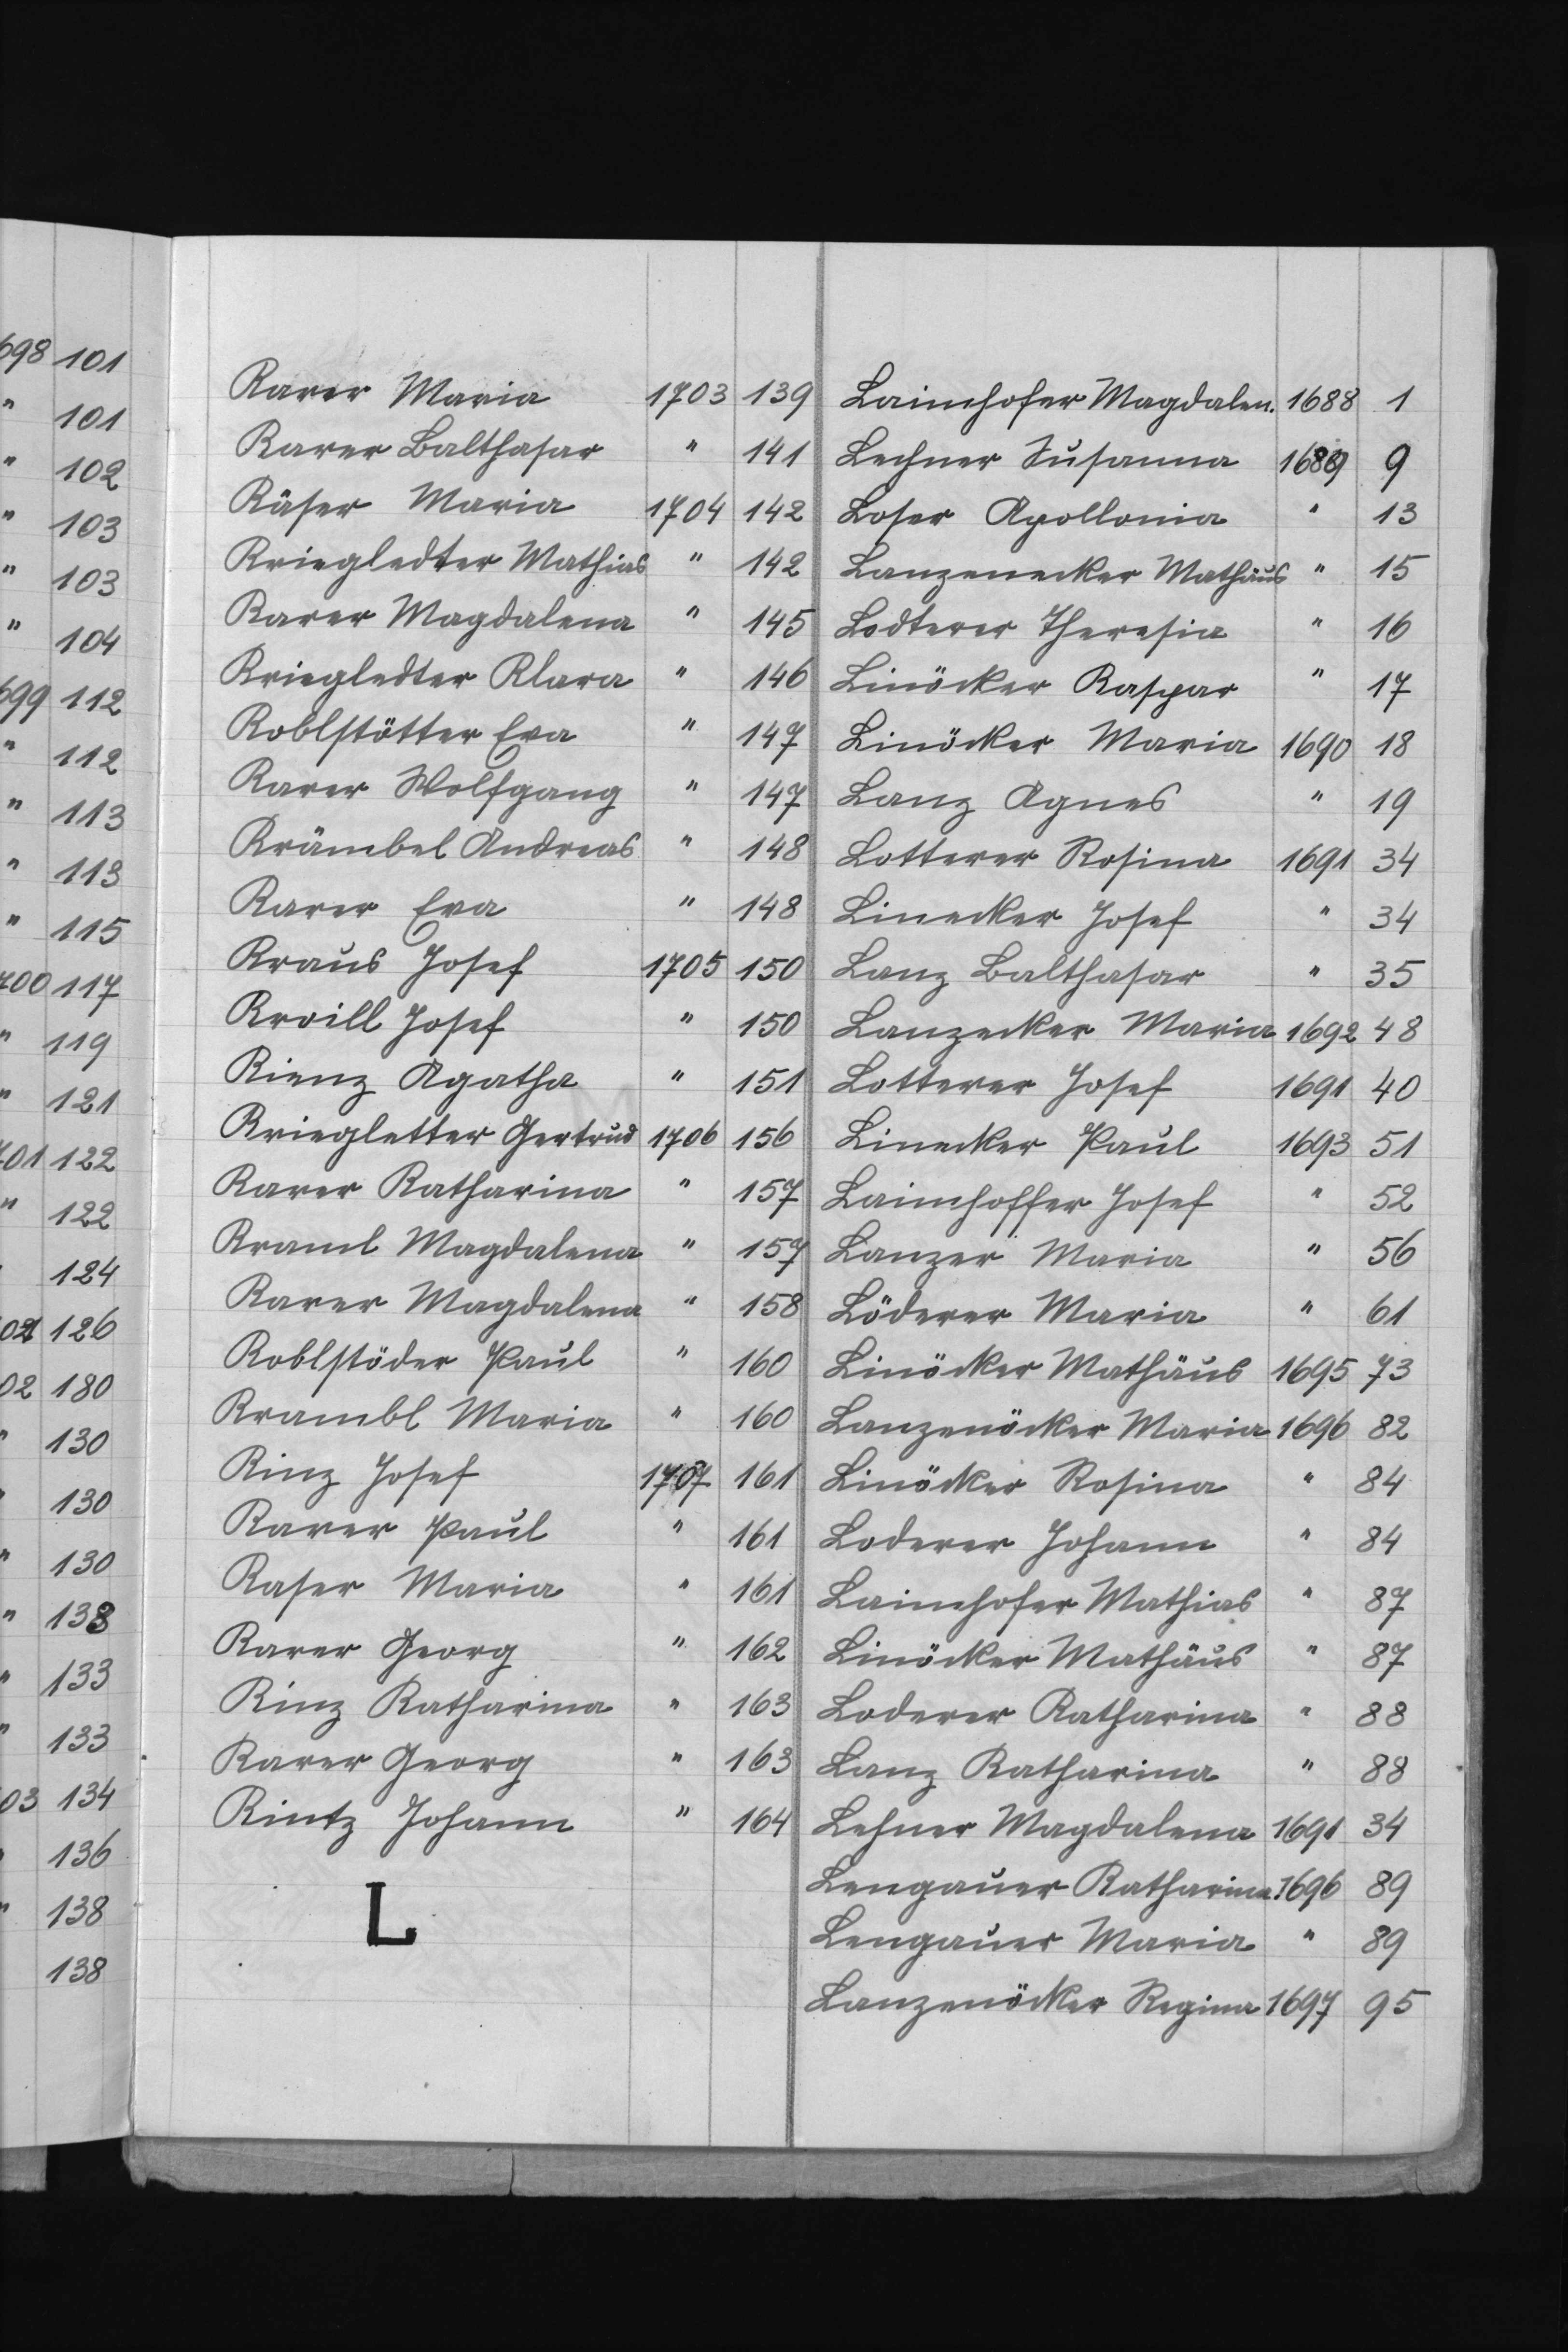 698 101
" 101
" 102
" 103
" 103
" 104
699 112
" 112
" 113
" 113
" 115
700 117
" 119
" 121
701 122
" 122
124
02 126
02 180
" 130
130
" 130
" 133
" 133
" 133
03 134
136
" 138
138
Karer Maria 1703 139
Karer Balthasar " 141
Käser Maria 1704 142
Kriegledter Mathias " 142
Karer Magdalena " 145
Kriegledter Klara " 146
Koblstötter Eva " 147
Karer Wolfgang " 147
Krämbel Andreas " 148
Karer Eva " 148
Kraus Josef 1705 150
Kroill Josef " 150
Kienz Agatha " 151
Kriegletter Gertrud 1706 156
Karer Katharina " 157
Kraml Magdalena " 157
Karer Magdalena " 158
Koblstöder Paul " 160
Krambl Maria " 160
Kinz Josef 1707 161
Karer Paul " 161
Kaser Maria " 161
Karer Georg " 162
Kinz Katharina " 163
Karer Georg " 163
Kintz Johann " 164
L
Laimhofer Magdalen. 1688 1
Lechner Susanna 1689 9
Loser Apollonia " 13
Lanzenecker Mathäus " 15
Lodterer Theresia " 16
Linöcker Kaspar " 17
Linöcker Maria 1690 18
Lanz Agnes " 19
Lotterer Rosina 1691 34
Linecker Josef " 34
Lanz Balthasar " 35
Lanzecker Maria 1692 48
Lotterer Josef 1691 40
Linecker Paul 1693 51
Laimhoffer Josef " 52
Lanzer Maria " 56
Löderer Maria " 61
Linöcker Mathäus 1695 73
Lanzenöcker Maria 1696 82
Linöcker Rosina " 84
Loderer Johann " 84
Laimhofer Mathias " 87
Linöcker Mathäus " 87
Loderer Katharina " 88
Lanz Katharina " 88
Lehner Magdalena 1691 34
Lengauer Katharina 1696 89
Lengauer Maria " 89
Lanzenöcker Regina 1697 95